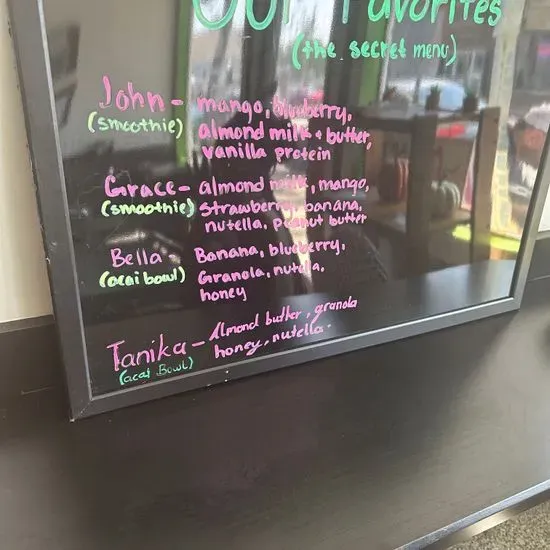 Our Favorites
(the secret menu)
John - mango, blueberry,
(smoothie) almond milk + butter,
vanilla protein
Grace - almond milk, mango,
(smoothie) strawberry, banana,
nutella, peanut butter
Bella - Banana, blueberry,
(acai bowl) Granola, nutella,
honey
Tanika - Almond butter, granola
(acai Bowl) honey, nutella.